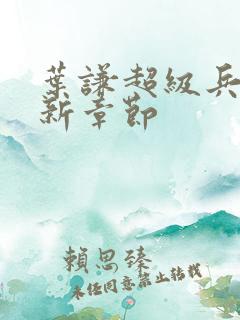 葉謙超級兵
新章節
賴思臻
未經同意禁止轉載